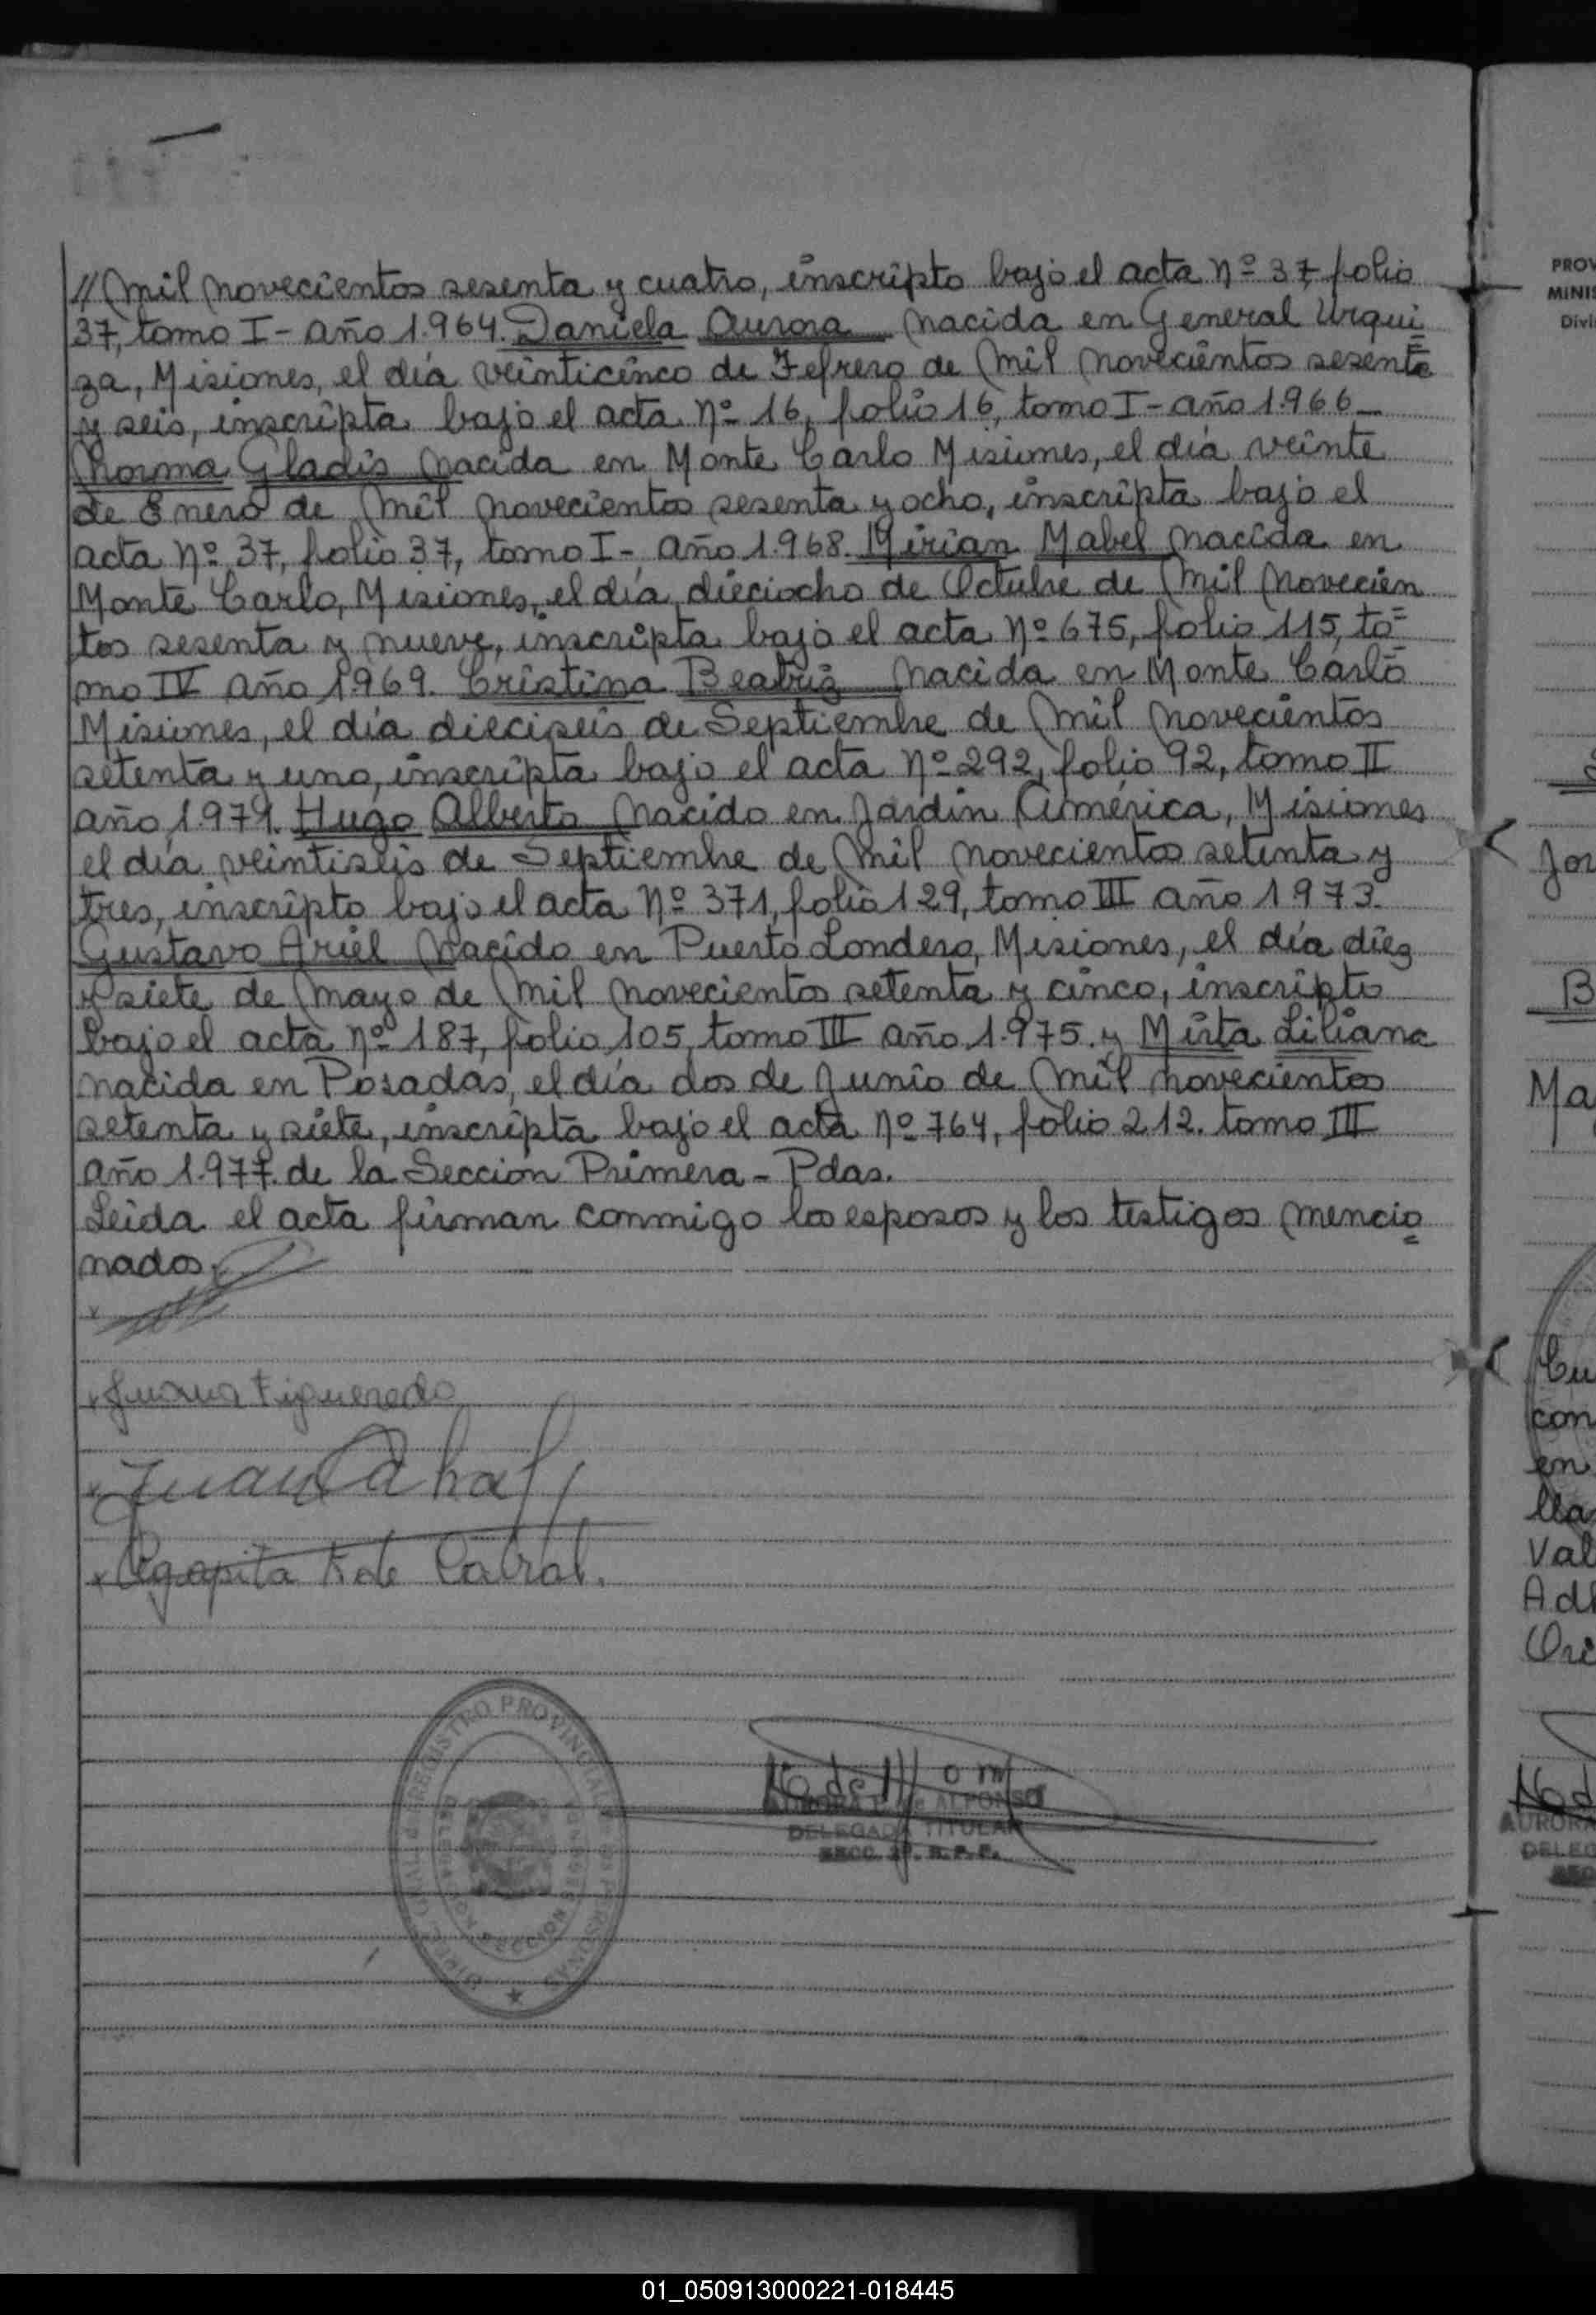 // Mil novecientos sesenta y cuatro, inscripto bajo el acta nº 37, folio
37, tomo I - año 1.964. Daniela Aurora nacida en General Urqui=
za, Misiones, el día veinticinco de Febrero de mil novecientos sesenta
y seis, inscripta bajo el acta nº 16, folio 16, tomo I - año 1.966 -
Norma Gladis nacida en Monte Carlo Misiones, el día veinte
de Enero de mil novecientos sesenta y ocho, inscripta bajo el
acta nº 37, folio 37, tomo I - año 1.968. Mirian Mabel nacida en
Monte Carlo, Misiones, el día dieciocho de Octubre de mil novecien
tos sesenta y nueve, inscripta bajo el acta nº 675, folio 115, to=
mo IV año 1.969. Cristina Beatriz nacida en Monte Carlo
Misiones, el día dieciseis de Septiembre de mil novecientos
setenta y uno, inscripta bajo el acta nº 292, folio 92, tomo II
año 1.971. Hugo Alberto nacido en Jardin América, Misiones
el día veintiseis de Septiembre de mil novecientos setenta y
tres, inscripto bajo el acta nº 371, folio 129, tomo III año 1973.
Gustavo Ariel nacido en Puerto Londero, Misiones, el día diez
y siete de mayo de mil novecientos setenta y cinco, inscripto
bajo el acta nº 187, folio 105, tomo III año 1.975. y Mirta Liliana
nacida en Posadas, el día dos de Junio de mil novecientos
setenta y siete, inscripta bajo el acta nº 764, folio 212. tomo III
año 1.977. de la Seccion Primera - Pdas.
Leida el acta firman conmigo los esposos y los testigos mencio=
nados.
Juana Figueredo
Juan Cabral
Agapita F. de Cabral.
REGISTRO PROVINCIAL DE LAS PERSONAS
SECCION
AURORA de ALFONSO
DELEGADA TITULAR
SECC. R. P. P.
PROV
MINIS
Divi
Jor
B
Ma
Cu
con
en
lla
Val
Ad
Ori
AURORA
DELEG
01_050913000221-018445